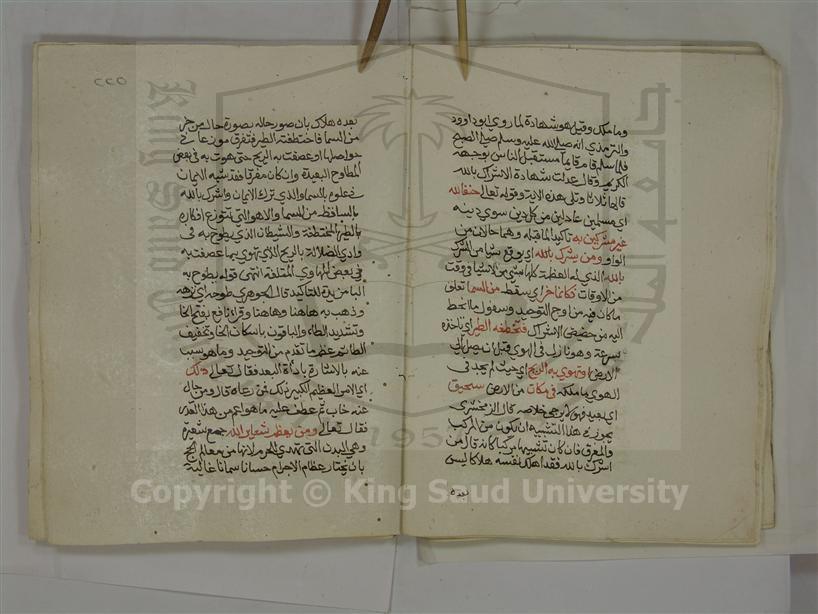 وما ملك وقيل هو شهادة لما روي ابو داوود
والترمذي انه صلى الله عليه وسلم صلى الصبح
فلما سلم قام قايما مستقبل الناس بوجهه
الكريم وقال عدلت شهادة الاشراك بالله
قالها ثلاثا وتلى هذه الاية وقوله تعالى حنفا لله
اي مسلمين عادلين من كل دين سوي دينه
غير مشركين به تاكيد لما قبله وهما حالان من
الواو ومن يشرك بالله اي يوقع شيا من الشرك
بالله الذي له العظمة كلها بشي من الاشيا في وقت
من الاوقات فكانما خر اي سقط من السما تعالى
ما كان فيه من اوج التوحيد وسفول ما انحط
اليه من حضيض الاشراك فتخطفه الطير اي تاخذه
بسرعة وهو نازل في الهوي قبل ان يصل الى
الارض او تهوي به الريح اي حيث لم يجد في
الهوي ما ملكه في مكان من الارض سحيق
اي بعيد فهو لا يرجى خلاصه قال الزمخشري
يجوز في هذا التشبيه ان يكون من المركب
والمفرق فان كان تشبيها مركبا كانه قال من
اشرك بالله فقد اهلك نفسه هلاكا ليس
بعده
٢٢٥
بعده هلاك بان صور حاله بصورة حال من خر
من السما فاختطفته الطير فتفرق مزعا في
حواصلها او عصفت به الريح حتى هوت به في بعض
المطاوح البعيدة وان كان مفرقا فقد شبه الايمان
في علوه بالسما والذي ترك الايمان واشرك بالله
بالساقط من السما والاهوا التي تتوزع افكاره
بالطير المختطفة والشيطان الذي يطوح به في
وادي الضلالة بالريح الذي تهوي بما عصفت به
في بعض المهاوي المتلفة انتهى قوله يطوح به
البا مزيدة للتاكيد قال الجوهري طوحه اي توهه
وذهب به هاهنا وهاهنا وقرا نافع بفتح الخا
وتشديد الطا والباقون باسكان الخا وتخفيف
الطا ثم عظم ما تقدم من التوحيد وما هو مسبب
عنه بالاشارة باداة البعد فقال تعالى ذلك
اي الامر العظيم الكبير ذلك فمن رعاه فاز ومن حال
عنه خاب ثم عطف عليه ما هو اعم من هذا القدر
فقال تعالى ومن يعظم شعاير الله جمع شعيرة
وهي البدن التي تهدي للحرم لانها من معالم الحج
بان يختار عظام الاجرام حسانا سمانا غالية
Copyright © King Saud University
King Saud University
جامعة الملك سعود
1957